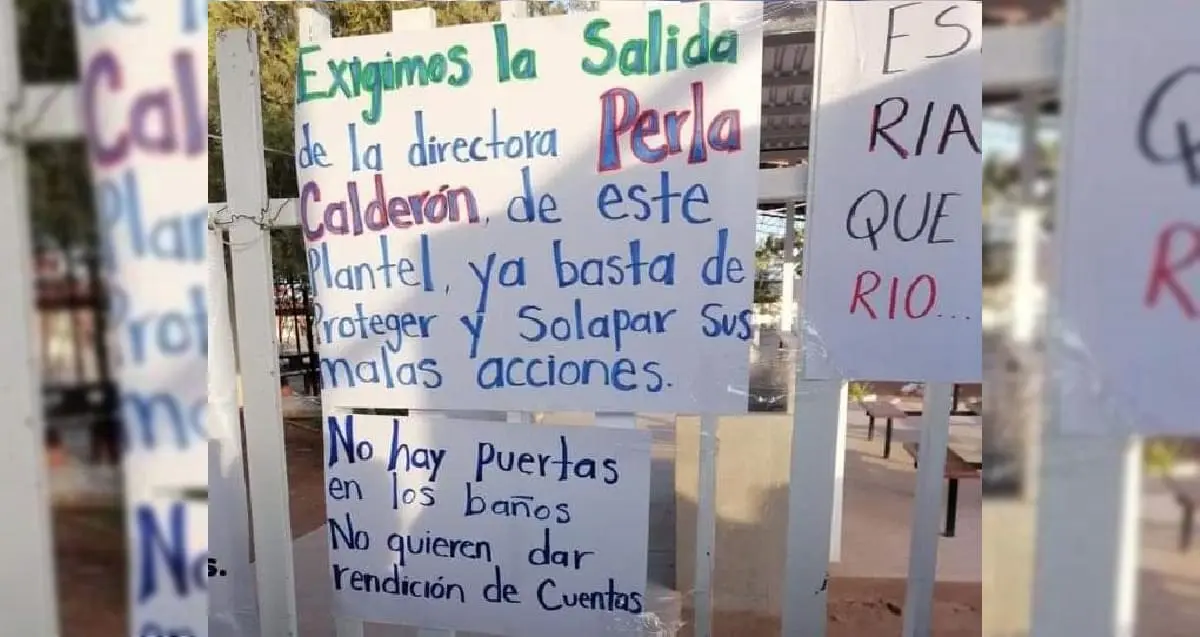 Exigimos la Salida
de la directora Perla
Calderón, de este
Plantel, ya basta de
Proteger y Solapar Sus
malas acciones.
No hay puertas
en los baños
No quieren dar
rendición de Cuentas
ES
RIA
QUE
RIO...
s.